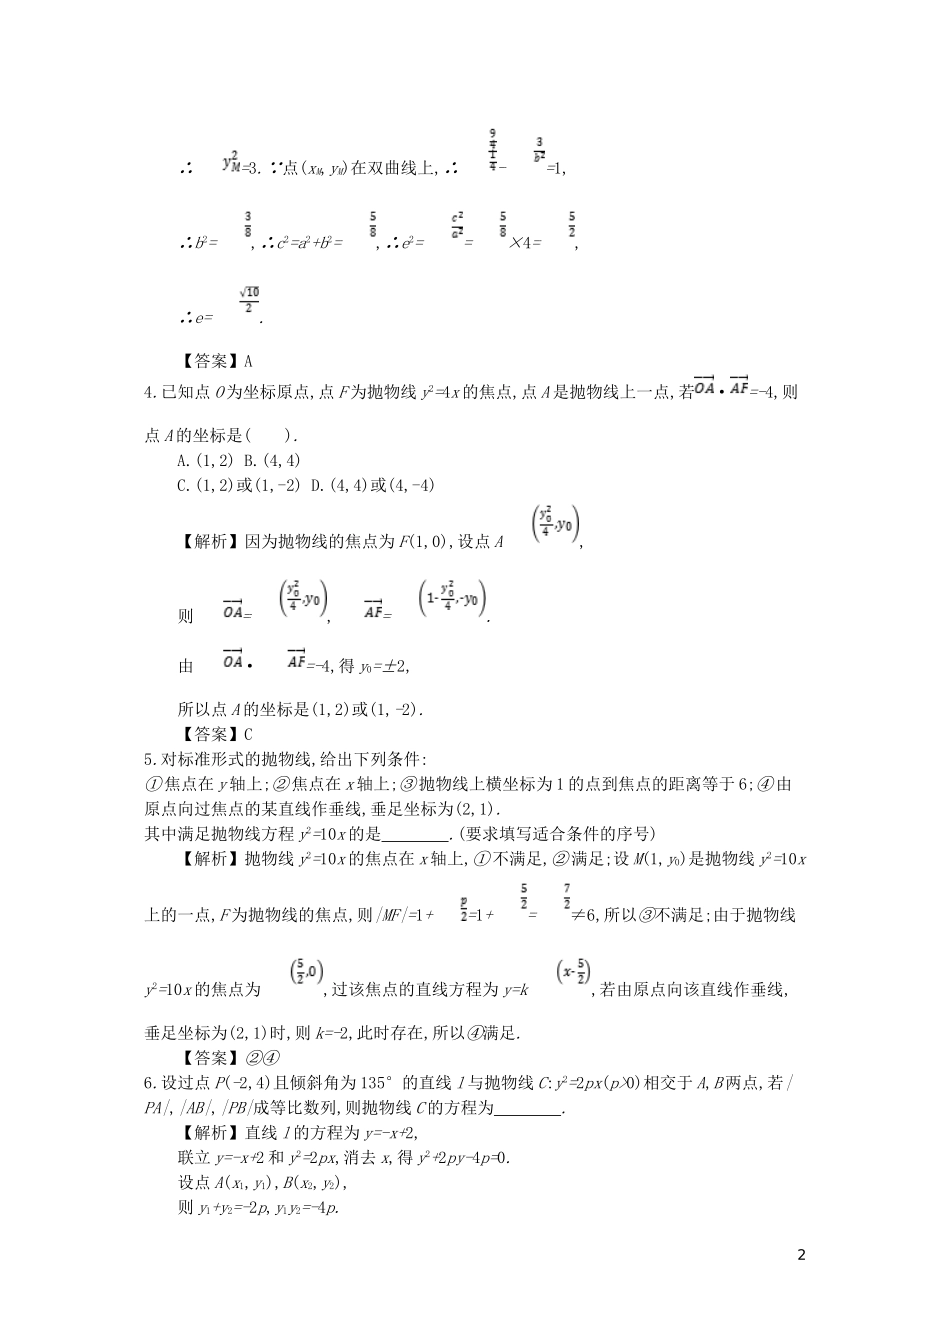 ∴y_M^2=3.∵点(x_M,y_M)在双曲线上,∴\frac{\frac{9}{4}}{\frac{1}{4}}-\frac{3}{b^2}=1,
∴b²=\frac{3}{8},∴c²=a²+b²=\frac{5}{8},∴e²=\frac{c^2}{a^2}=\frac{5}{8}×4=\frac{5}{2},
∴e=\frac{\sqrt{10}}{2}.
【答案】A
4.已知点O为坐标原点,点F为抛物线y²=4x的焦点,点A是抛物线上一点,若\overrightarrow{OA}·\overrightarrow{AF}=-4,则
点A的坐标是(　　).
A.(1,2) B.(4,4)
C.(1,2)或(1,-2) D.(4,4)或(4,-4)
【解析】因为抛物线的焦点为F(1,0),设点A(\frac{y_0^2}{4},y_0),
则\overrightarrow{OA}=(\frac{y_0^2}{4},y_0),\overrightarrow{AF}=(1-\frac{y_0^2}{4},-y_0).
由\overrightarrow{OA}·\overrightarrow{AF}=-4,得y₀=±2,
所以点A的坐标是(1,2)或(1,-2).
【答案】C
5.对标准形式的抛物线,给出下列条件:
①焦点在y轴上;②焦点在x轴上;③抛物线上横坐标为1的点到焦点的距离等于6;④由
原点向过焦点的某直线作垂线,垂足坐标为(2,1).
其中满足抛物线方程y²=10x的是________.(要求填写适合条件的序号)
【解析】抛物线y²=10x的焦点在x轴上,①不满足,②满足;设M(1,y₀)是抛物线y²=10x
上的一点,F为抛物线的焦点,则|MF|=1+\frac{p}{2}=1+\frac{5}{2}=\frac{7}{2}≠6,所以③不满足;由于抛物线
y²=10x的焦点为(\frac{5}{2},0),过该焦点的直线方程为y=k(x-\frac{5}{2}),若由原点向该直线作垂线,
垂足坐标为(2,1)时,则k=-2,此时存在,所以④满足.
【答案】②④
6.设过点P(-2,4)且倾斜角为135°的直线l与抛物线C:y²=2px(p>0)相交于A,B两点,若|
PA|,|AB|,|PB|成等比数列,则抛物线C的方程为________.
【解析】直线l的方程为y=-x+2,
联立y=-x+2和y²=2px,消去x,得y²+2py-4p=0.
设点A(x₁,y₁),B(x₂,y₂),
则y₁+y₂=-2p,y₁y₂=-4p.
2